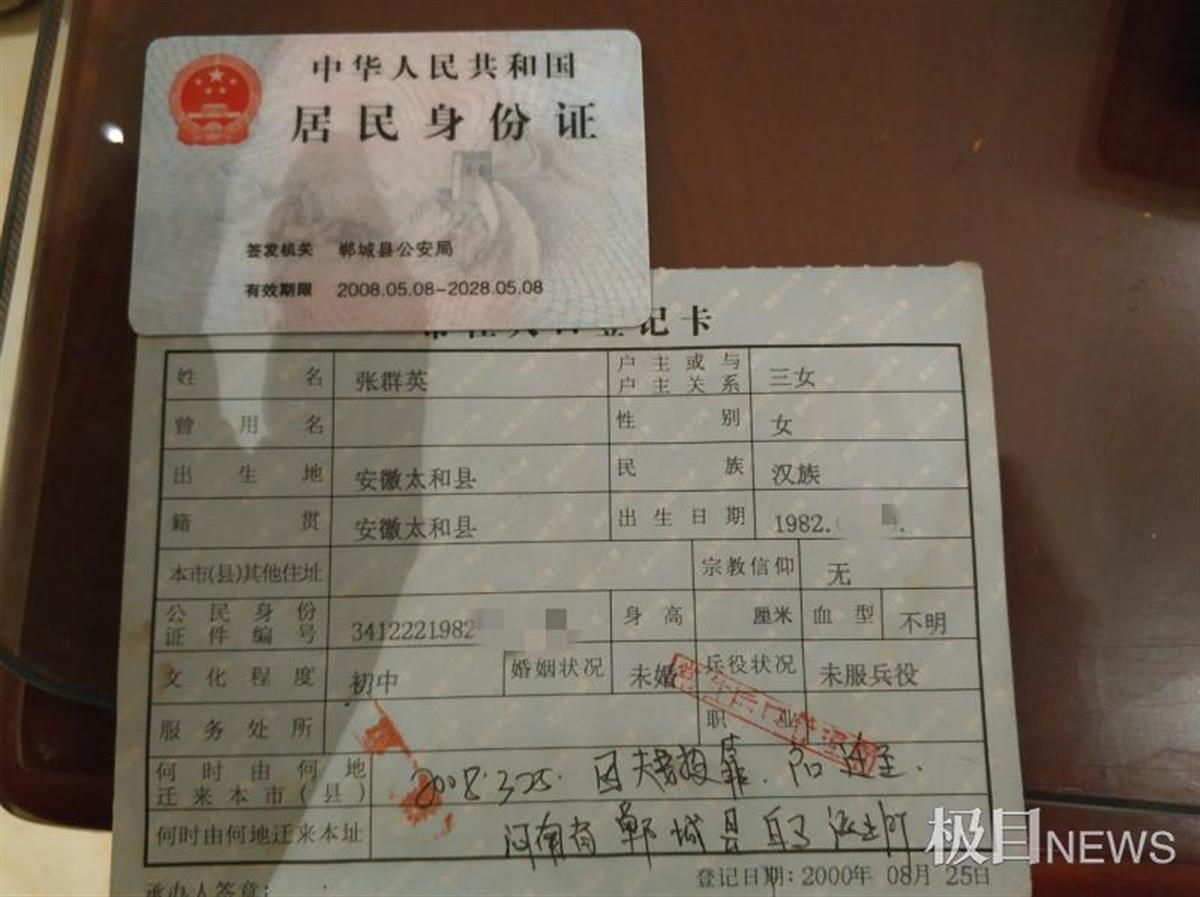 中华人民共和国
居民身份证
签发机关 郸城县公安局
有效期限 2008.05.08-2028.05.08
登记卡
姓名 张群英 户主或与户主关系 三女
曾用名 性别 女
出生地 安徽太和县 民族 汉族
籍贯 安徽太和县 出生日期 1982.
本市(县)其他住址 宗教信仰 无
公民身份证件编号 3412221982 身高 厘米 血型 不明
文化程度 初中 婚姻状况 未婚 兵役状况 未服兵役
服务处所 职业
何时由何地迁来本市(县) 2008.3.25. 因夫妻投靠.户口迁至.
何时由何地迁来本址 河南省郸城县 派出所
承办人签章: 登记日期:2000年 08月 25日
极目NEWS